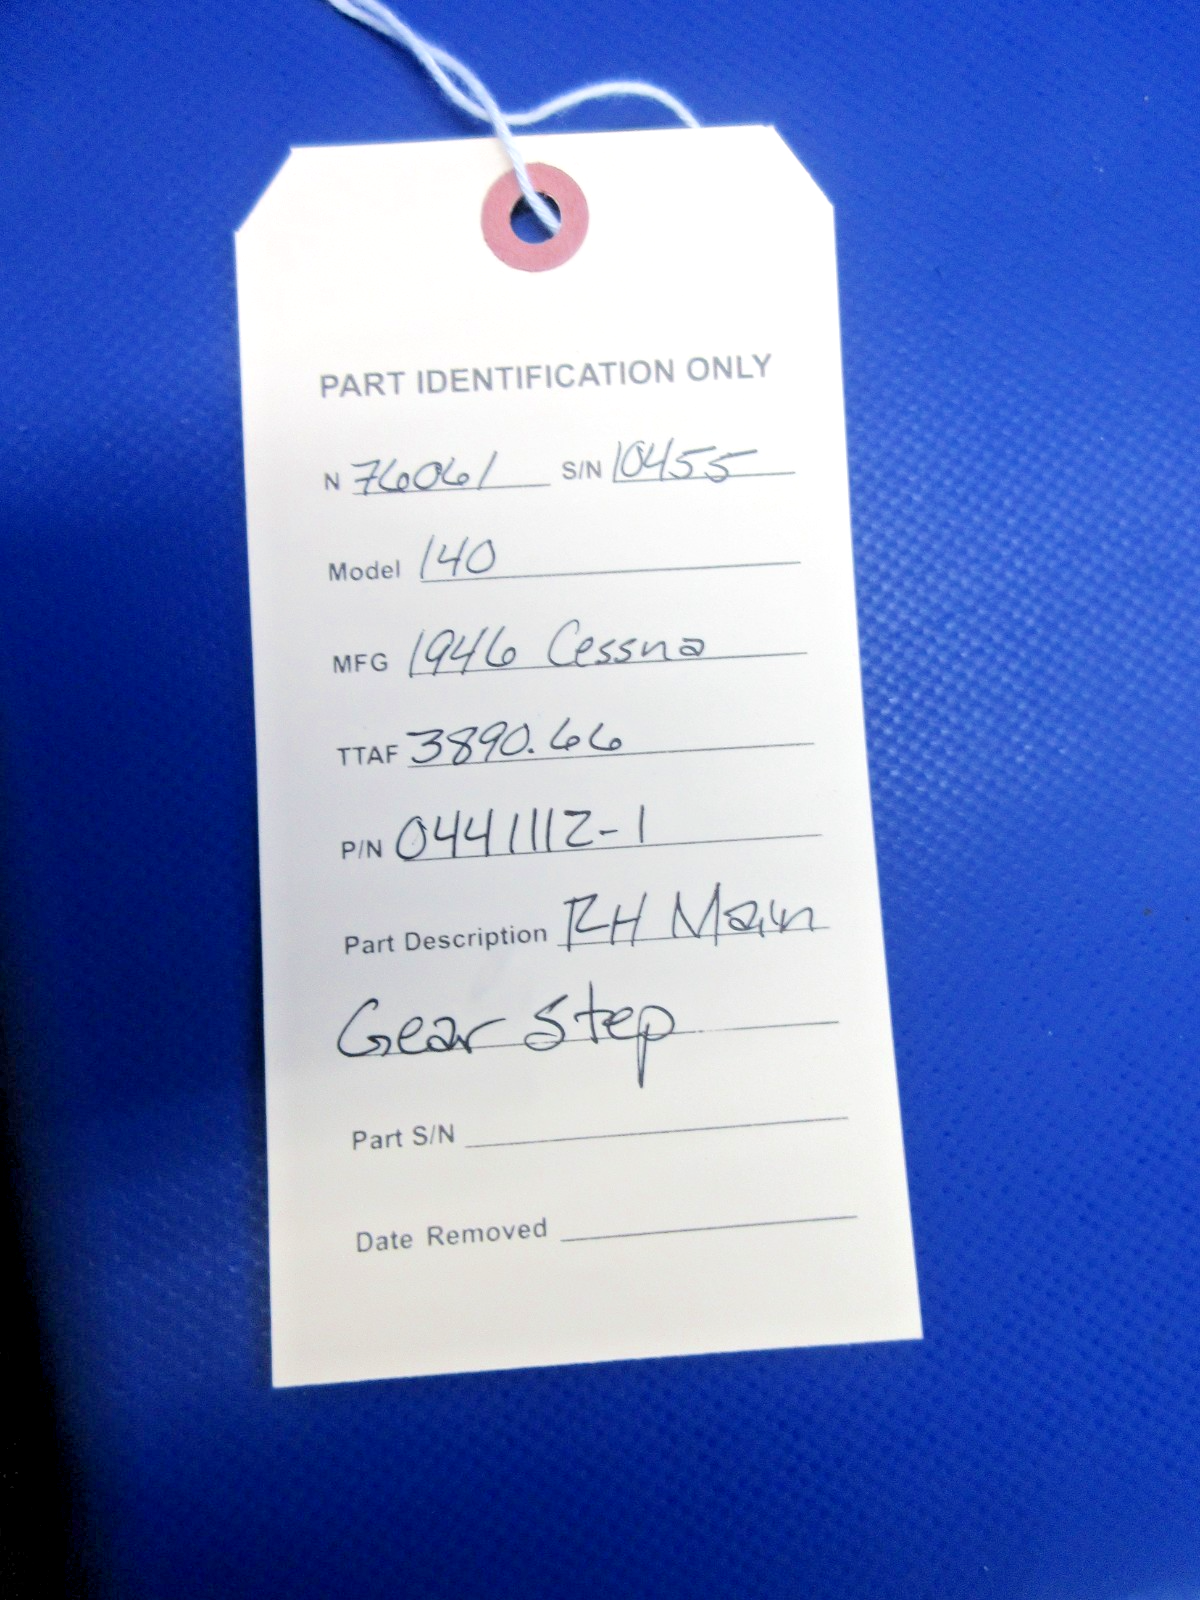 PART IDENTIFICATION ONLY
N 76061 S/N 10455
Model 140
MFG 1946 Cessna
TTAF 3890.66
P/N 0441112-1
Part Description RH Main
Gear Step
Part S/N
Date Removed